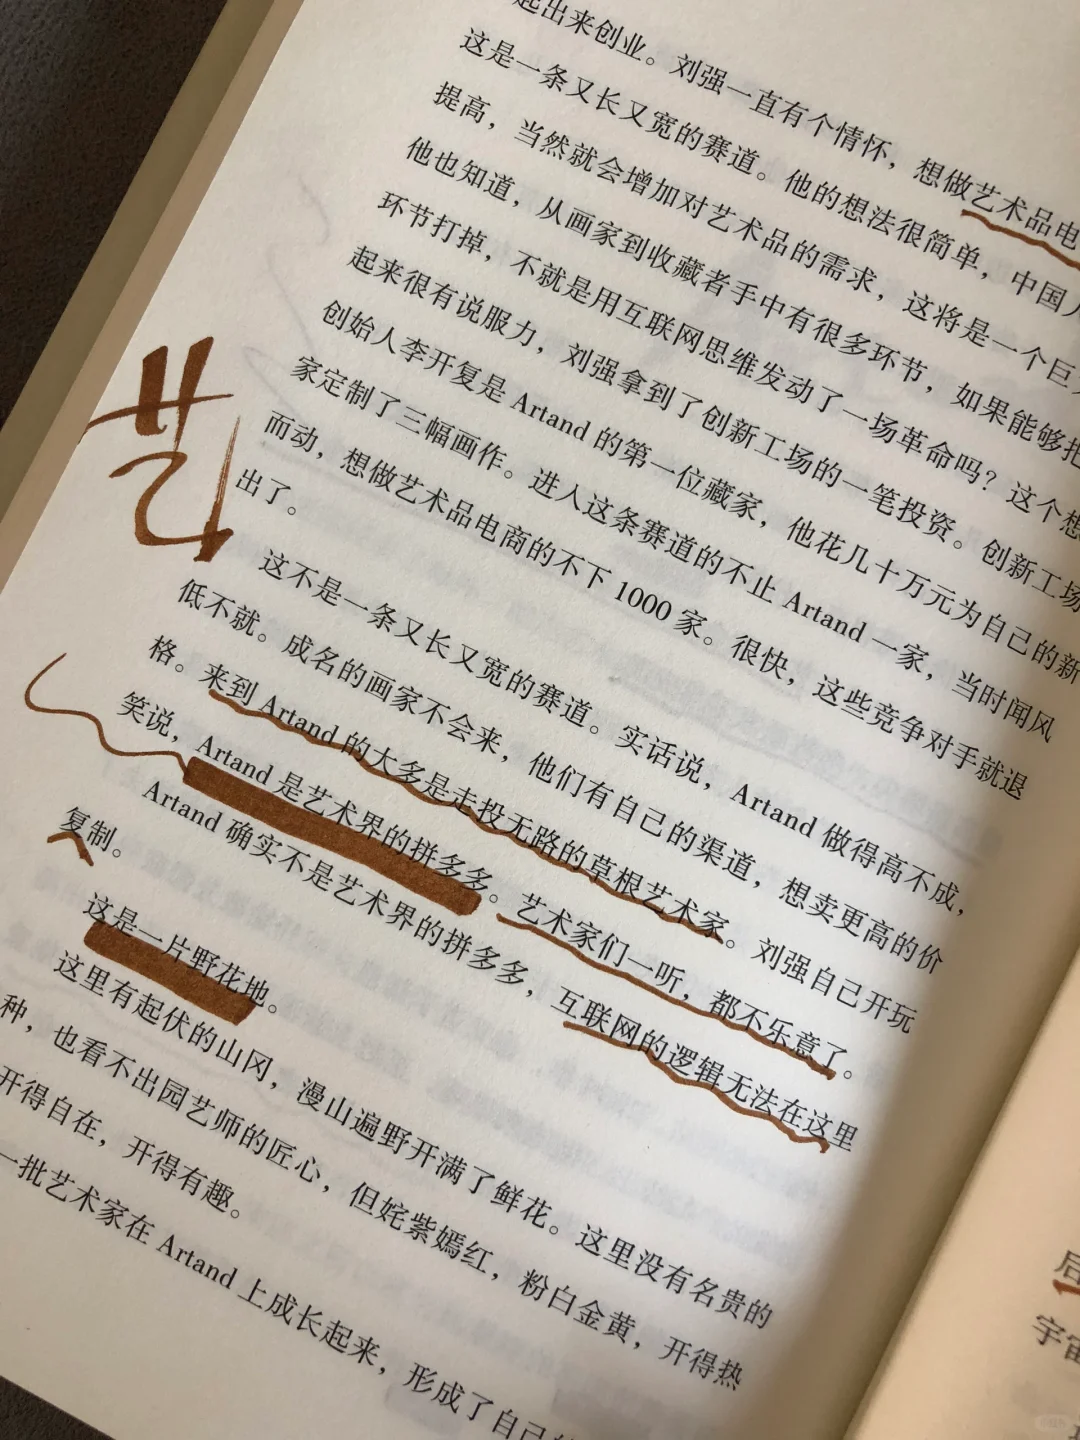 起出来创业。刘强一直有个情怀，想做艺术品电
这是一条又长又宽的赛道。他的想法很简单，中国人
提高，当然就会增加对艺术品的需求，这将是一个巨
他也知道，从画家到收藏者手中有很多环节，如果能够把
环节打掉，不就是用互联网思维发动了一场革命吗？这个想
起来很有说服力，刘强拿到了创新工场的一笔投资。创新工场
创始人李开复是 Artand 的第一位藏家，他花几十万元为自己的新
家定制了三幅画作。进入这条赛道的不止 Artand 一家，当时闻风
而动，想做艺术品电商的不下 1000 家。很快，这些竞争对手就退
出了。
艺
这不是一条又长又宽的赛道。实话说，Artand 做得高不成，
低不就。成名的画家不会来，他们有自己的渠道，想卖更高的价
格。来到 Artand 的大多是走投无路的草根艺术家。刘强自己开玩
笑说，Artand 是艺术界的拼多多。艺术家们一听，都不乐意了。
Artand 确实不是艺术界的拼多多，互联网的逻辑无法在这里
复制。
这是一片野花地。
这里有起伏的山冈，漫山遍野开满了鲜花。这里没有名贵的
种，也看不出园艺师的匠心，但姹紫嫣红，粉白金黄，开得热
开得自在，开得有趣。
一批艺术家在 Artand 上成长起来，形成了自己
后
宇宙